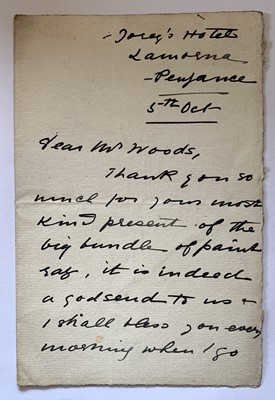 - Jory's Hotel
Lamorna
- Penzance
5th Oct
Dear Mr Woods,
Thank you so
much for your most
kind present of the
big bundle of paint
rag, it is indeed
a godsend to us &
I shall bless you every
morning when I go